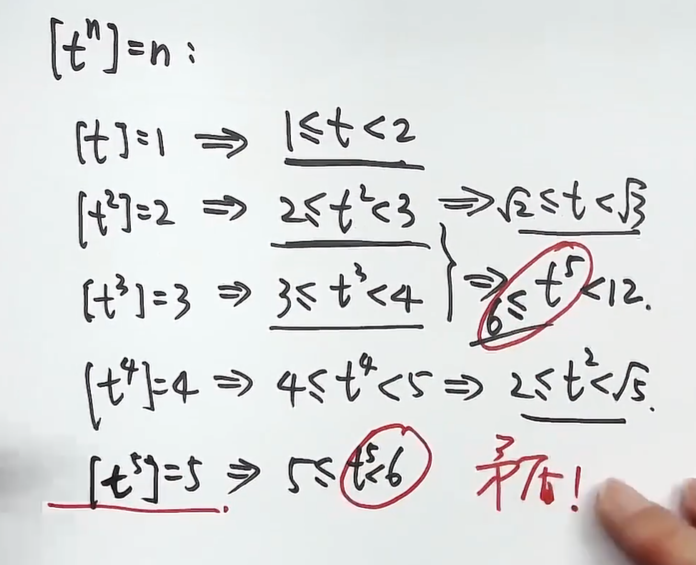 [tⁿ]=n:
[t]=1 ⇒ 1≤t<2
[t²]=2 ⇒ 2≤t²<3 ⇒ √2≤t<√3
[t³]=3 ⇒ 3≤t³<4 } ⇒ 6≤t⁵<12.
[t⁴]=4 ⇒ 4≤t⁴<5 ⇒ 2≤t²<√5.
[t⁵]=5 ⇒ 5≤t⁵<6 矛盾!